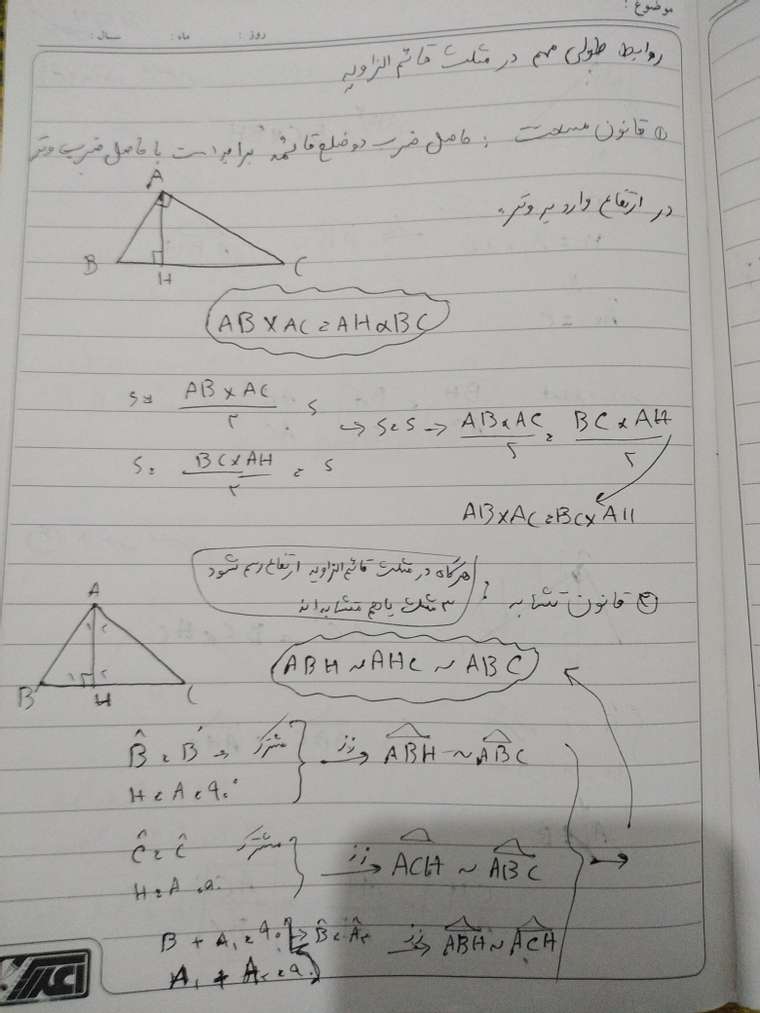 موضوع :
روز : ماه : سال :
روابط طولی مهم در مثلث قائم الزاویه
① قانون مساحت : حاصل ضرب دو ضلع قائمه برابر است با حاصل ضرب وتر
در ارتفاع وارد بر وتر.
A
B H C
AB × AC = AH × BC
S = AB × AC / ۲ = S
S = BC × AH / ۲ = S
→ S = S → AB × AC / ۲ = BC × AH / ۲
AB × AC = BC × AH
② قانون تشابه : هرگاه در مثلث قائم الزاویه ارتفاع رسم شود
۳ مثلث باهم متشابه اند
A
۱ ۲
۱ ۲
B H C
ABH ~ AHC ~ ABC
B̂ = B → مشترک
H = A = ۹۰° → زز ABH ~ ABC
Ĉ = Ĉ مشترک
H = A = ۹۰ → زز ACH ~ ABC
B + A₁ = ۹۰ → B̂ = Â۲ زز → ABH ~ ACH
A₁ + A۲ = ۹۰